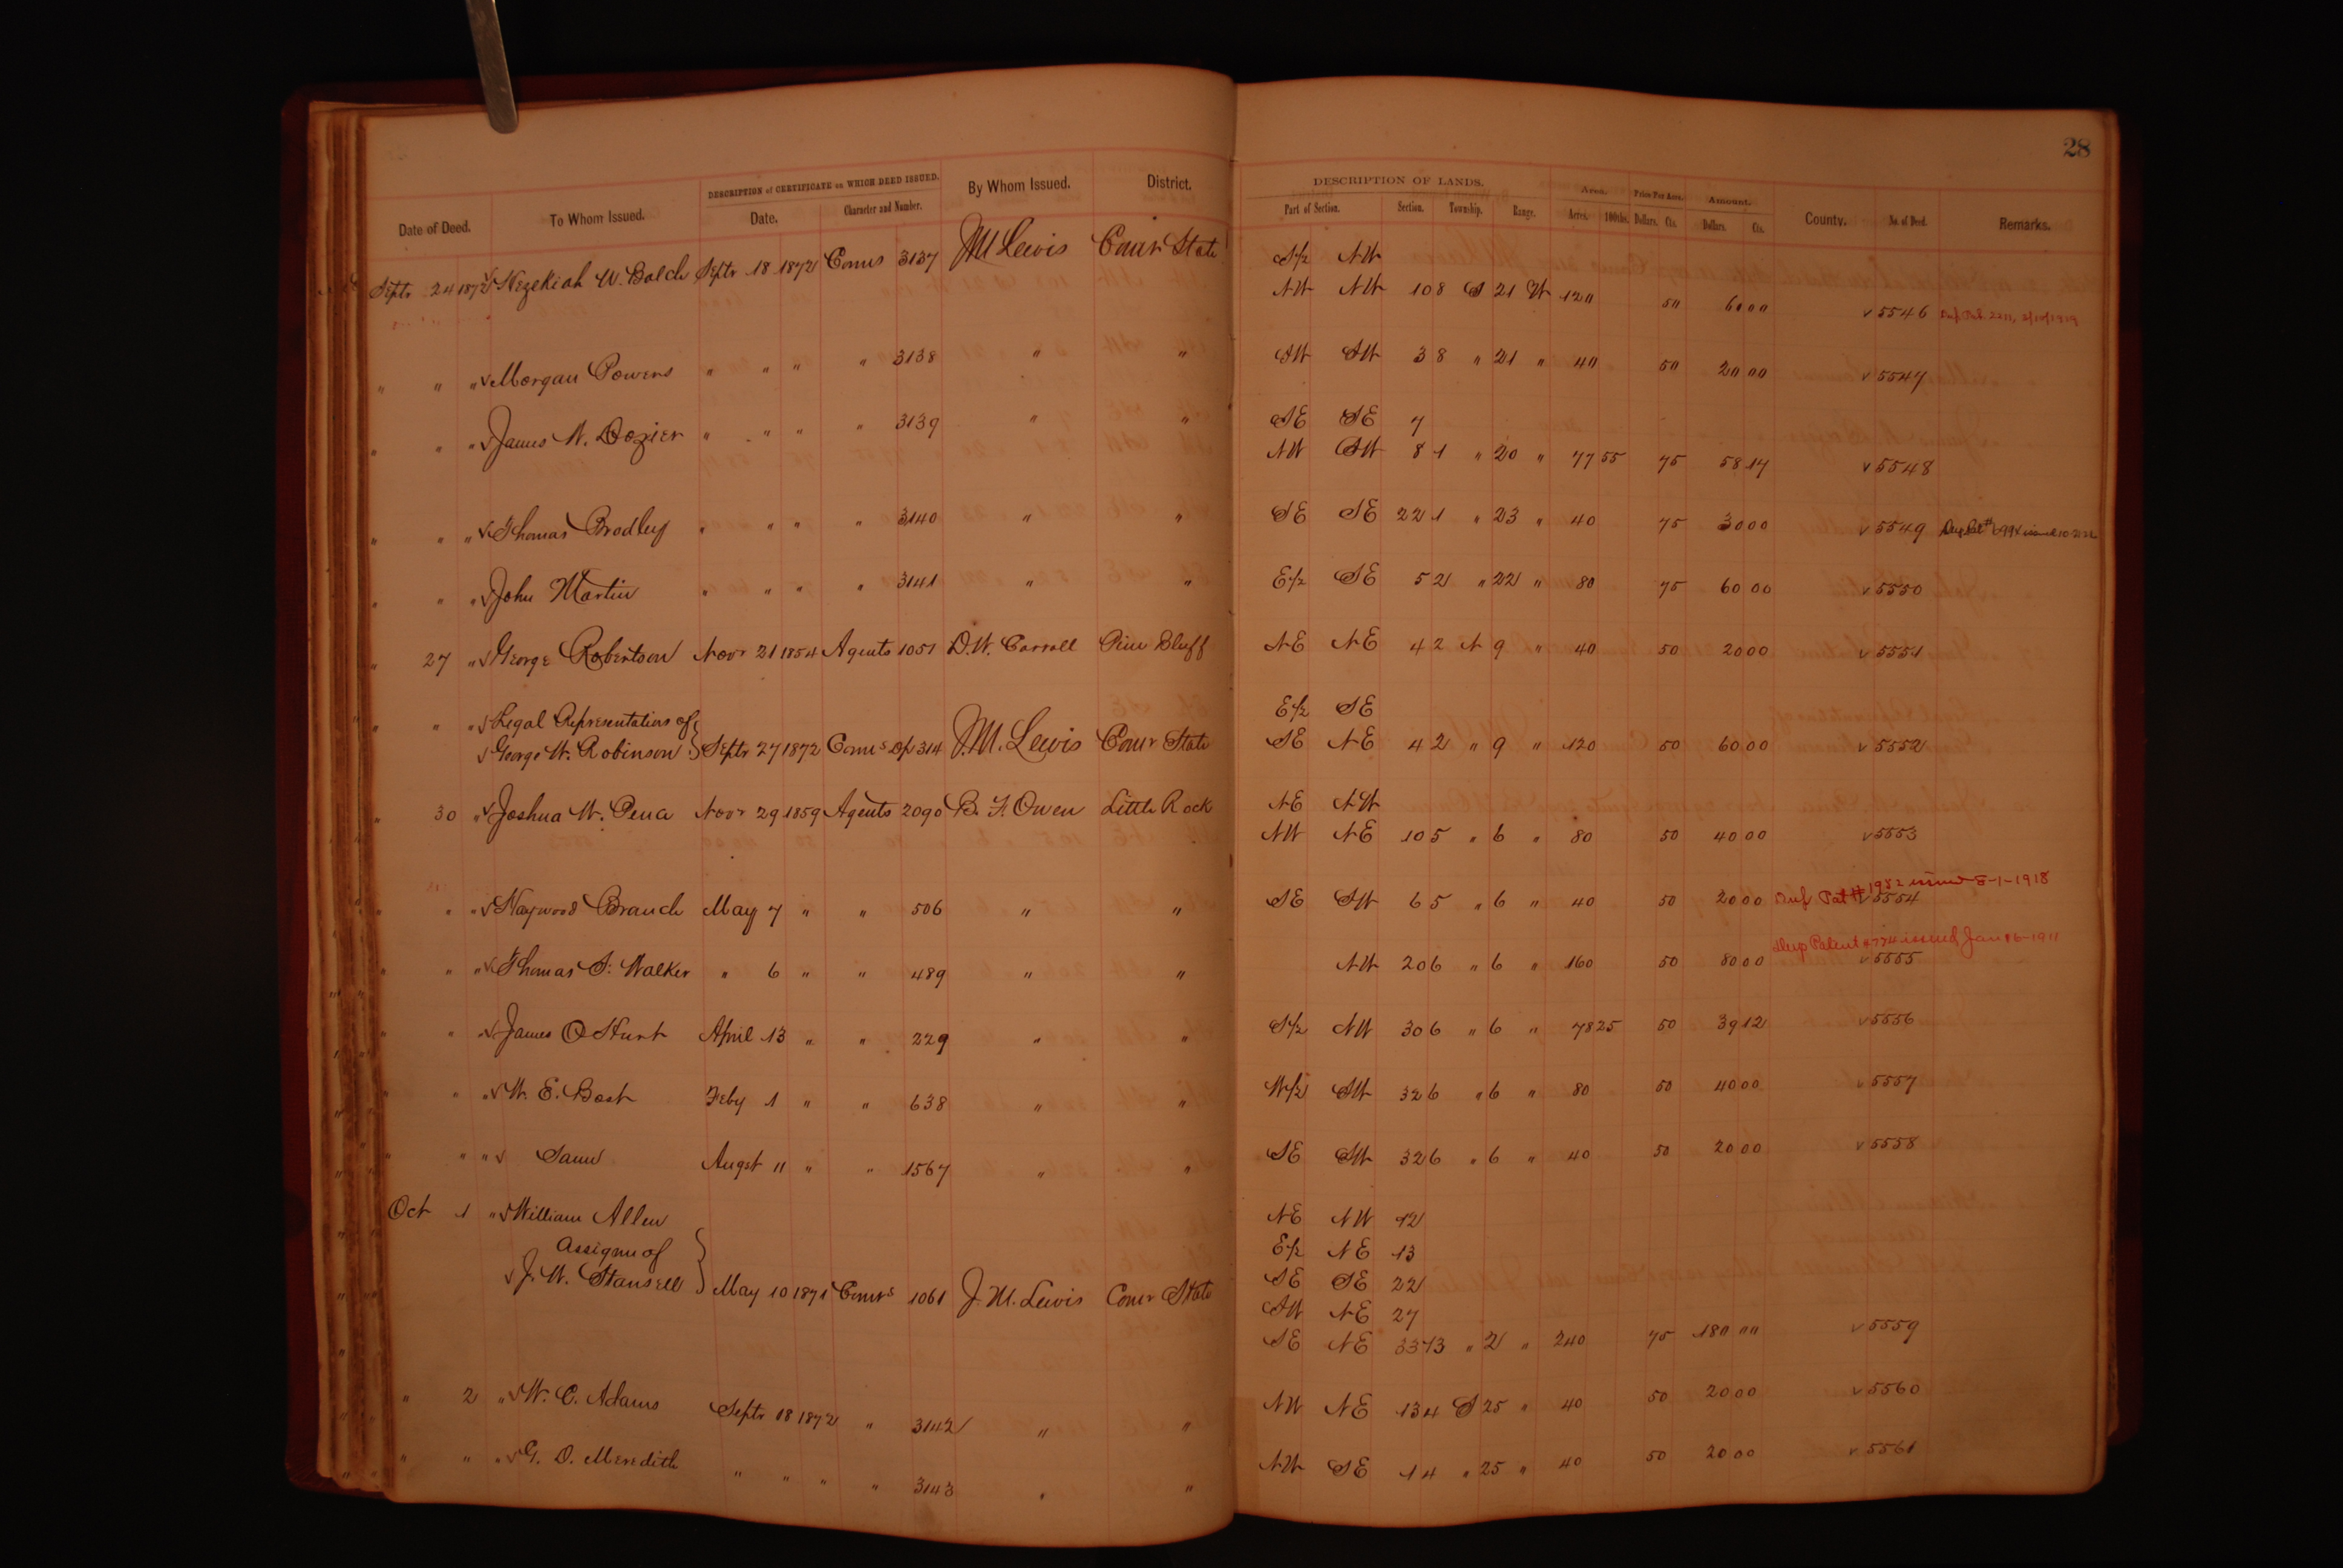 28
DESCRIPTION of CERTIFICATE on WHICH DEED ISSUED.
Date of Deed. To Whom Issued. Date. Character and Number. By Whom Issued. District.
DESCRIPTION OF LANDS. Area. Price Per Acre. Amount.
Part of Section. Section. Township. Range. Acres. 100ths. Dollars. Cts. Dollars. Cts. County. No. of Deed. Remarks.
S/2 NW
Septr 24 1872 Hezekiah W. Balch Septr 18 1872 Coms 3137 J M Lewis Comr State NW NW 10 8 S 21 W 120 50 60 00 5546
" " " Morgan Powers " " " " 3138 " " SW SW 3 8 " 21 " 40 50 20 00 5547
" " " James W. Dozier " " " " 3139 " " SE SE 7
NW SW 8 1 " 20 " 77 55 75 58 17 5548
" " " Thomas Bradley " " " " 3140 " " SE SE 22 1 " 23 " 40 75 30 00 5549
" " " John Martin " " " " 3141 " " E/2 SE 5 2 " 22 " 80 75 60 00 5550
" 27 " George Robertson Novr 21 1854 Agents 1051 D. W. Carroll Pine Bluff NE NE 4 2 N 9 " 40 50 20 00 5551
" " " Legal Representatives of E/2 SE
George W. Robinson Septr 27 1872 Coms Dp 314 J. M. Lewis Comr State SE NE 4 2 " 9 " 120 50 60 00 5552
" 30 " Joshua W. Pena Novr 29 1859 Agents 2090 B. F. Owen Little Rock NE NW
NW NE 10 5 " 6 " 80 50 40 00 5553
Dup Pat # 1982 issued 8-1-1918
" " " Haywood Branch May 7 " " 506 " " SE SW 6 5 " 6 " 40 50 20 00 5554
Dup Patent # 774 issued Jan 16-1911
" " " Thomas S. Walker " 6 " " 489 " " NW 20 6 " 6 " 160 50 80 00 5555
" " " James O Hurt April 13 " " 229 " " S/2 NW 30 6 " 6 " 78 25 50 39 12 5556
" " " W. E. Bost Feby 1 " " 638 " " W/2 SW 32 6 " 6 " 80 50 40 00 5557
" " " Same Augst 11 " " 1567 " " SE SW 32 6 " 6 " 40 50 20 00 5558
Oct 1 " William Allen NE NW 12
Assignee of E/2 NE 13
J. W. Stansell May 10 1871 Comrs 1061 J. M. Lewis Comr State SE SE 22
SW NE 27
SE NE 33 13 " 2 " 240 75 180 00 5559
" 2 " W. C. Adams Septr 18 1872 " 3142 " " NW NE 13 4 S 25 " 40 50 20 00 5560
" " " G. D. Meredith " " " " 3143 " " NW SE 1 4 " 25 " 40 50 20 00 5561